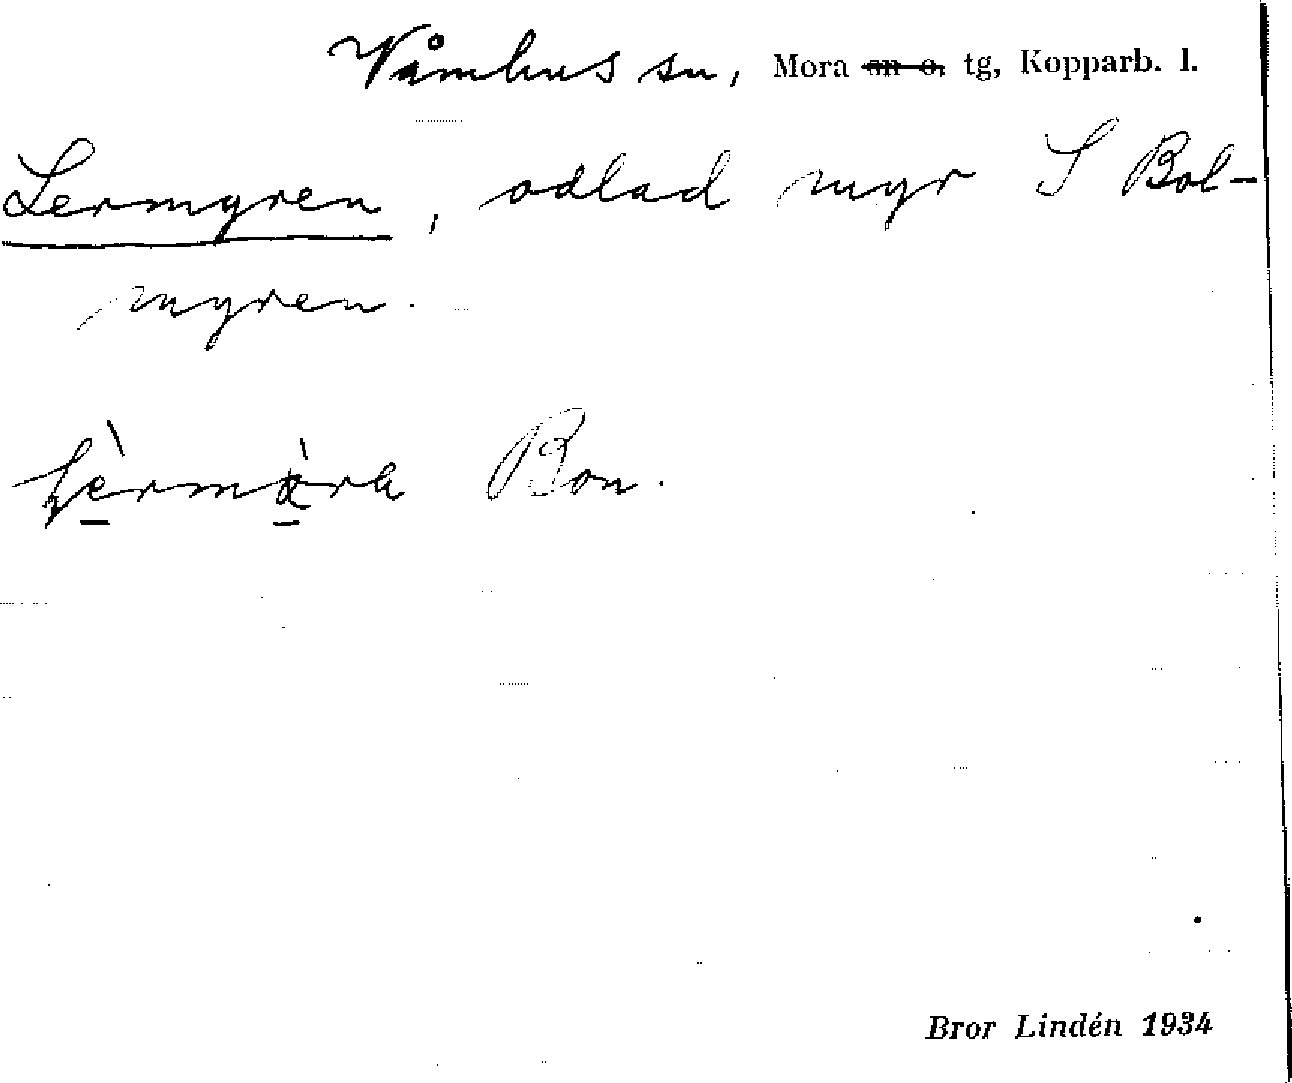 Våmhus sn, Mora sn o. tg, Kopparb. l.
Lermyren, odlad myr S Bol-
myren.
Bon.
Bror Lindén 1934